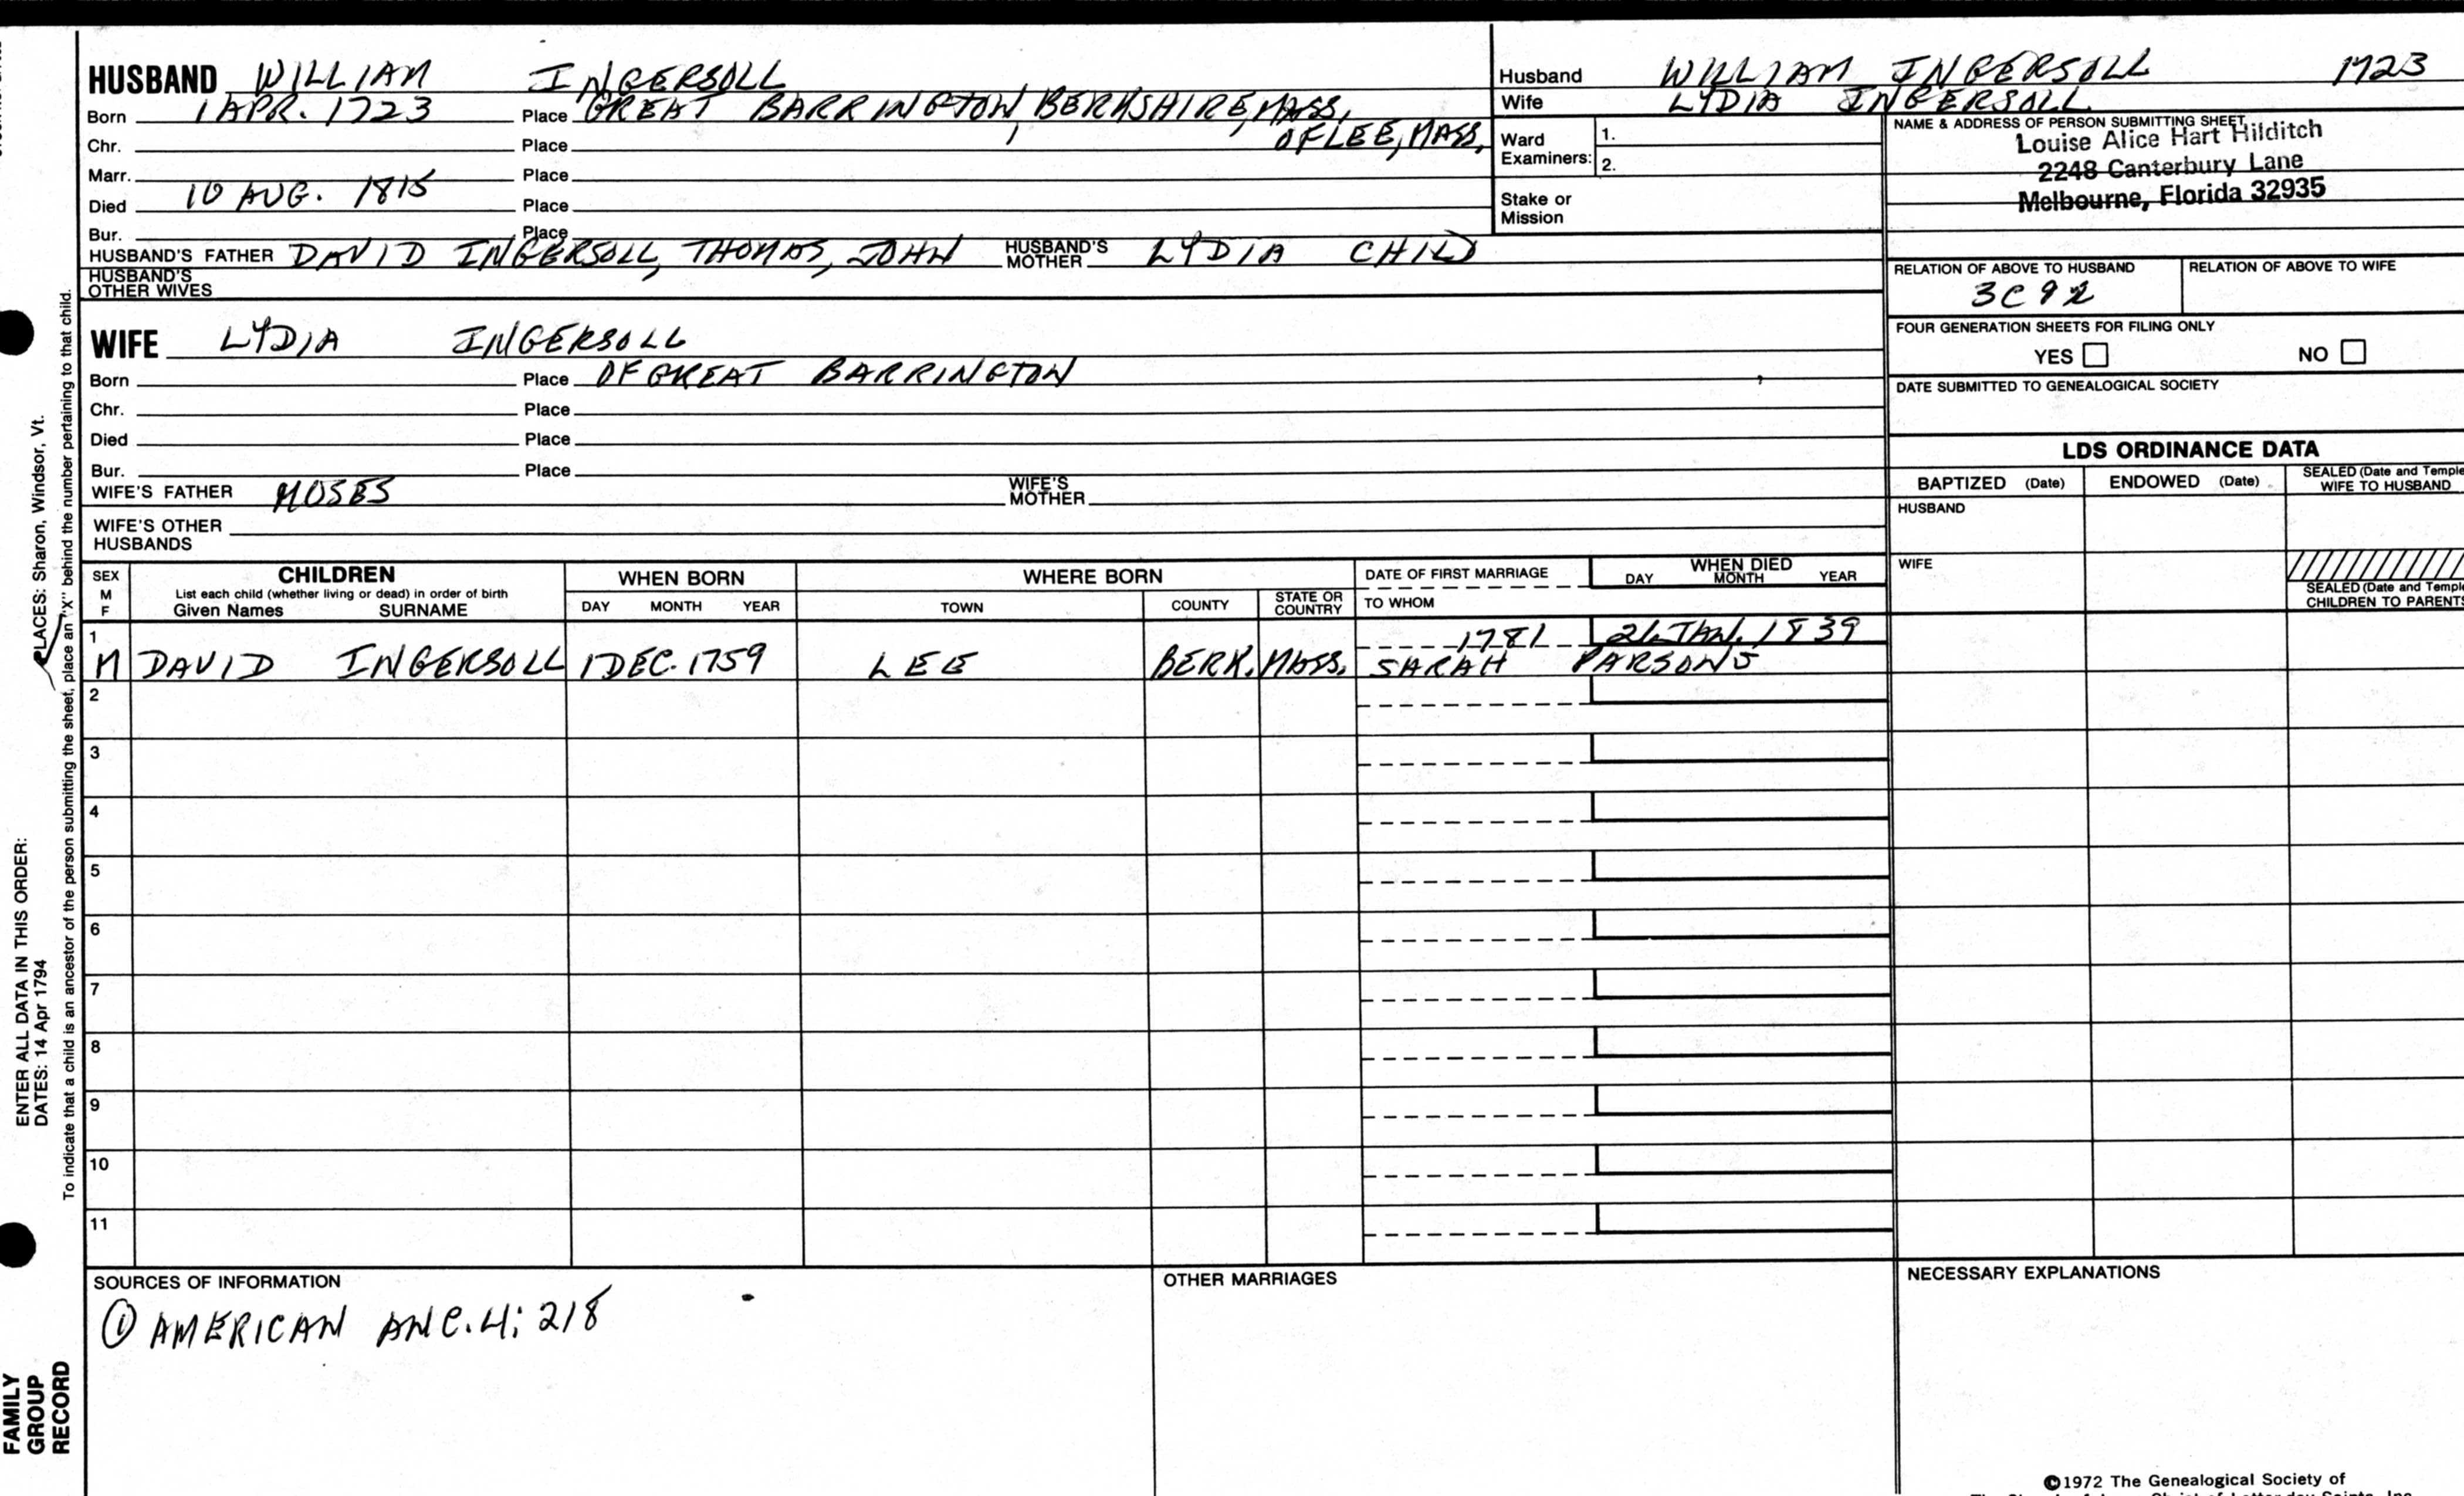 HUSBAND WILLIAM INGERSOLL
Born 1 APR. 1723 Place GREAT BARRINGTON, BERKSHIRE, MASS,
Chr. Place OF LEE, MASS,
Marr. Place
Died 10 AUG. 1815 Place
Bur. Place
HUSBAND'S FATHER DAVID INGERSOLL, THOMAS, JOHN HUSBAND'S MOTHER LYDIA CHILD
HUSBAND'S OTHER WIVES
Husband WILLIAM INGERSOLL 1723
Wife LYDIA INGERSOLL
Ward Examiners: 1.
2.
Stake or Mission
NAME & ADDRESS OF PERSON SUBMITTING SHEET
Louise Alice Hart Hilditch
2248 Canterbury Lane
Melbourne, Florida 32935
RELATION OF ABOVE TO HUSBAND RELATION OF ABOVE TO WIFE
3C9R
FOUR GENERATION SHEETS FOR FILING ONLY
YES NO
DATE SUBMITTED TO GENEALOGICAL SOCIETY
WIFE LYDIA INGERSOLL
Born Place OF GREAT BARRINGTON
Chr. Place
Died Place
Bur. Place
WIFE'S FATHER MOSES WIFE'S MOTHER
WIFE'S OTHER HUSBANDS
LDS ORDINANCE DATA
BAPTIZED (Date) ENDOWED (Date) SEALED (Date and Temple
WIFE TO HUSBAND
HUSBAND
WIFE
SEALED (Date and Temple
CHILDREN TO PARENTS
SEX M F CHILDREN WHEN BORN WHERE BORN DATE OF FIRST MARRIAGE WHEN DIED
List each child (whether living or dead) in order of birth
Given Names SURNAME DAY MONTH YEAR TOWN COUNTY STATE OR COUNTRY TO WHOM DAY MONTH YEAR
1 1781 26 JAN. 1839
M DAVID INGERSOLL 1 DEC. 1759 LEE BERK. MASS. SARAH PARSONS
2
3
4
5
6
7
8
9
10
11
SOURCES OF INFORMATION OTHER MARRIAGES NECESSARY EXPLANATIONS
① AMERICAN ANC. 4: 218
©1972 The Genealogical Society of
FAMILY
GROUP
RECORD
ENTER ALL DATA IN THIS ORDER:
DATES: 14 Apr 1794 PLACES: Sharon, Windsor, Vt.
To indicate that a child is an ancestor of the person submitting the sheet, place an "X" behind the number pertaining to that child.